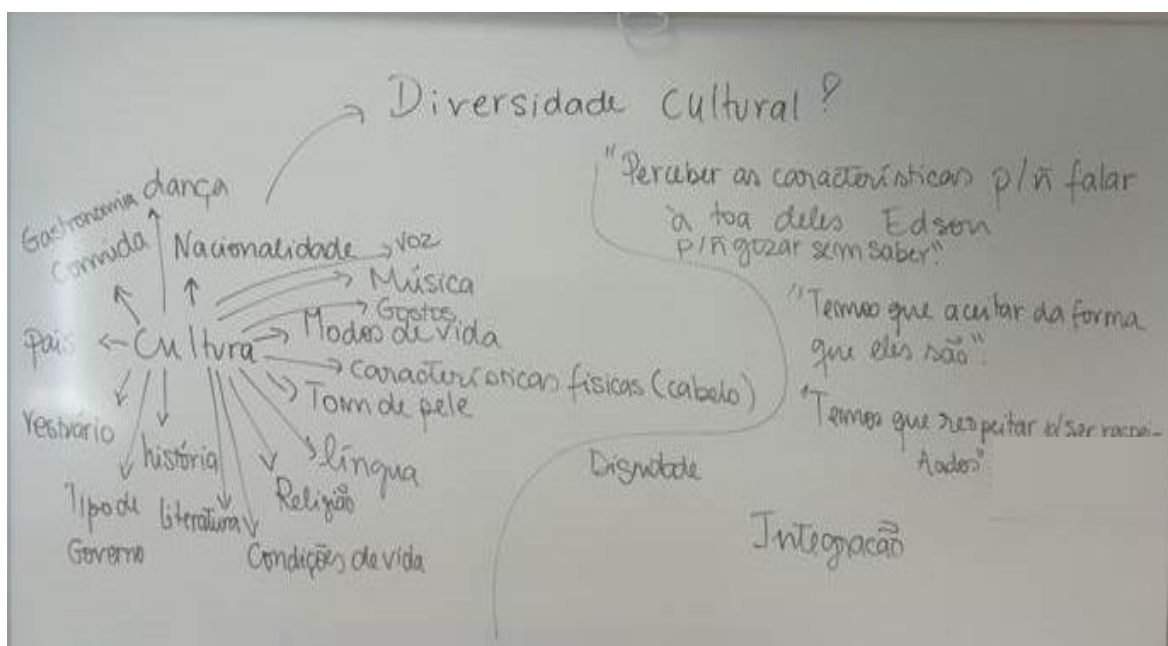 Diversidade Cultural?
Gastronomia dança
Comuda
Nacionalidade
voz
Música
Gostos
Modos de vida
país
Cultura
Características físicas (cabelo)
Tom de pele
Vestuário
história
língua
Religião
Tipo de
Governo
literatura
Condições de vida
"Perceber as características p/ñ falar
à toa deles Edson
p/ñ gozar sem saber".
"Temos que aceitar da forma
que eles são".
"Temos que respeitar p/ser respei-
tados"
Dignidade
Integração